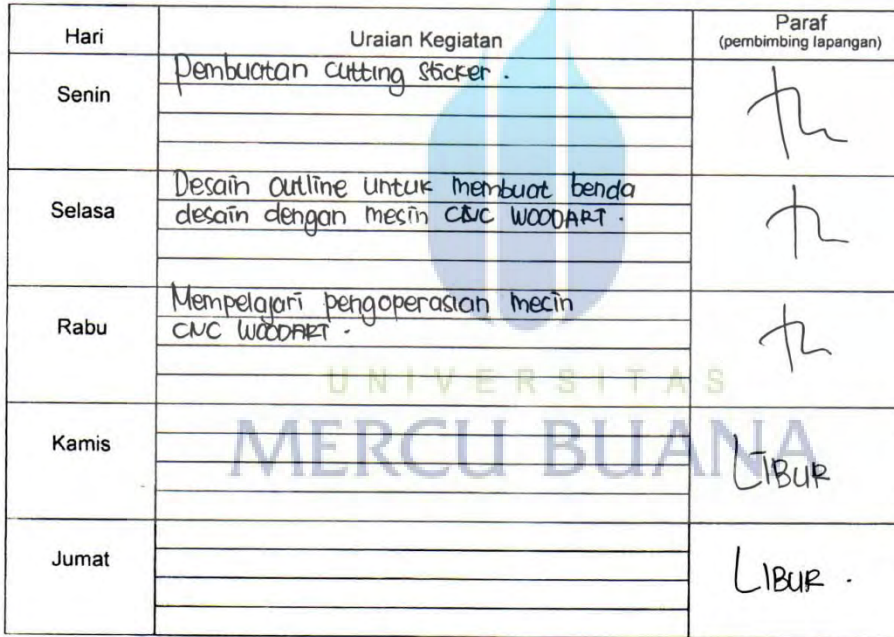 Hari Uraian Kegiatan Paraf
(pembimbing lapangan)
Senin
Pembuatan cutting sticker.
Selasa
Desain outline untuk membuat benda
desain dengan mesin CNC WOODART.
Rabu
Mempelajari pengoperasian mecin
CNC WOODART.
UNIVERSITAS
MERCU BUANA
Kamis
LIBUR
Jumat
LIBUR.